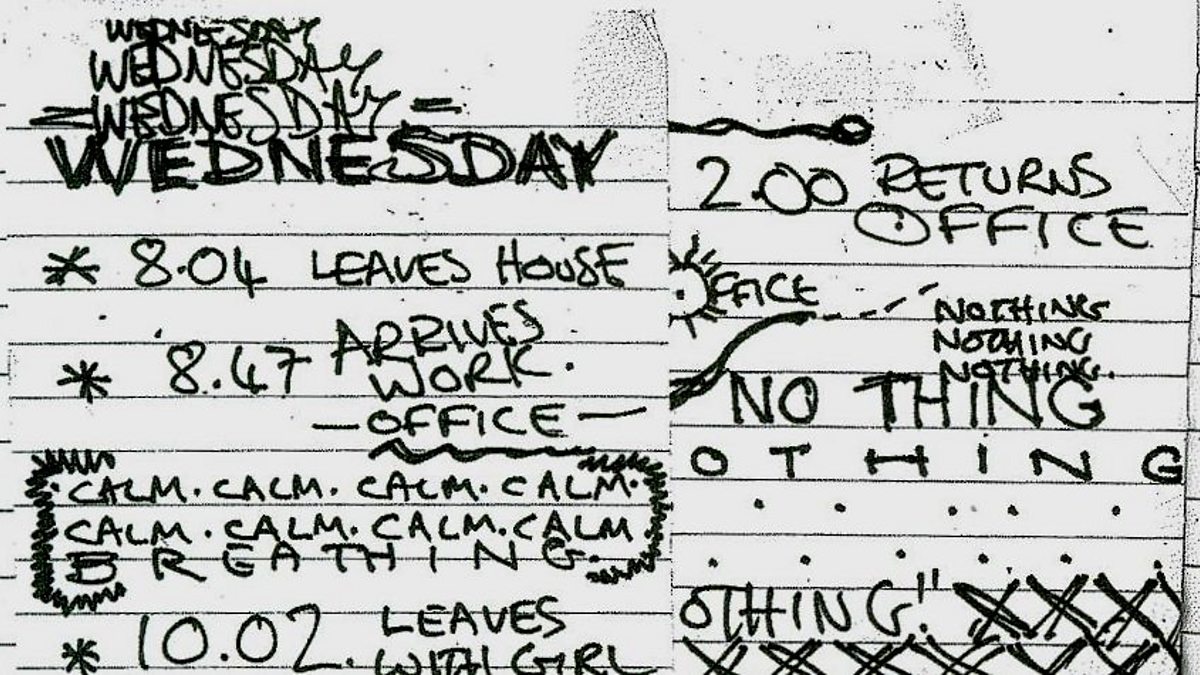 WEDNESDAY
WEDNESDAY
=WEDNESDAY=
WEDNESDAY
* 8.04 LEAVES HOUSE
* 8.47 ARRIVES
WORK.
—OFFICE—
CALM. CALM. CALM. CALM.
CALM. CALM. CALM. CALM
BREATHING.
* 10.02. LEAVES
WITH GIRL
2.00 RETURNS
OFFICE
OFFICE
NOTHING
NOTHING
NOTHING.
NO THING
O T H I N G
OTHING!!